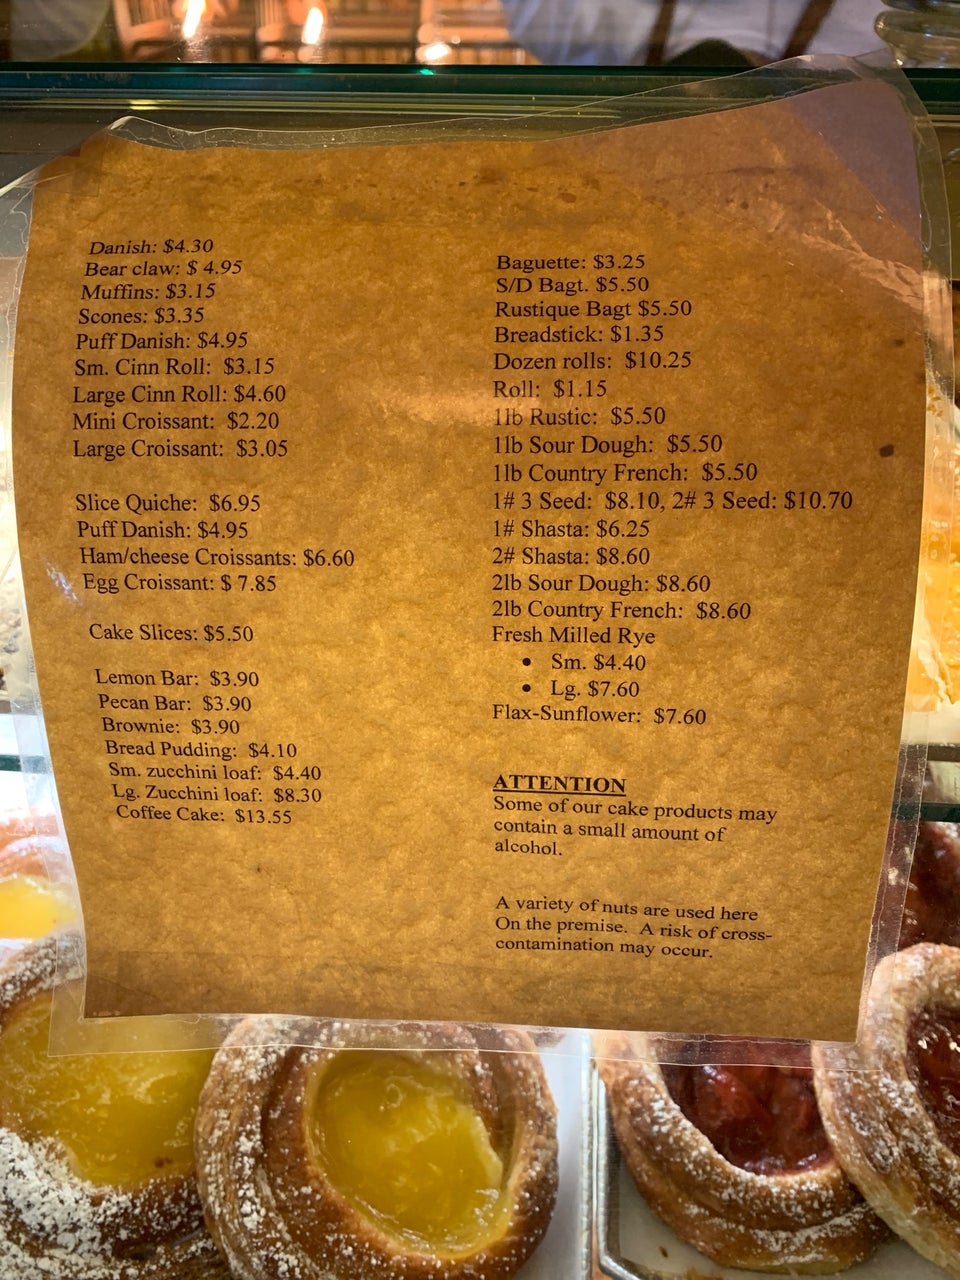 Danish: $4.30
Bear claw: $ 4.95
Muffins: $3.15
Scones: $3.35
Puff Danish: $4.95
Sm. Cinn Roll: $3.15
Large Cinn Roll: $4.60
Mini Croissant: $2.20
Large Croissant: $3.05
Slice Quiche: $6.95
Puff Danish: $4.95
Ham/cheese Croissants: $6.60
Egg Croissant: $ 7.85
Cake Slices: $5.50
Lemon Bar: $3.90
Pecan Bar: $3.90
Brownie: $3.90
Bread Pudding: $4.10
Sm. zucchini loaf: $4.40
Lg. Zucchini loaf: $8.30
Coffee Cake: $13.55
Baguette: $3.25
S/D Bagt. $5.50
Rustique Bagt $5.50
Breadstick: $1.35
Dozen rolls: $10.25
Roll: $1.15
1lb Rustic: $5.50
1lb Sour Dough: $5.50
1lb Country French: $5.50
1# 3 Seed: $8.10, 2# 3 Seed: $10.70
1# Shasta: $6.25
2# Shasta: $8.60
2lb Sour Dough: $8.60
2lb Country French: $8.60
Fresh Milled Rye
• Sm. $4.40
• Lg. $7.60
Flax-Sunflower: $7.60
ATTENTION
Some of our cake products may
contain a small amount of
alcohol.
A variety of nuts are used here
On the premise. A risk of cross-
contamination may occur.